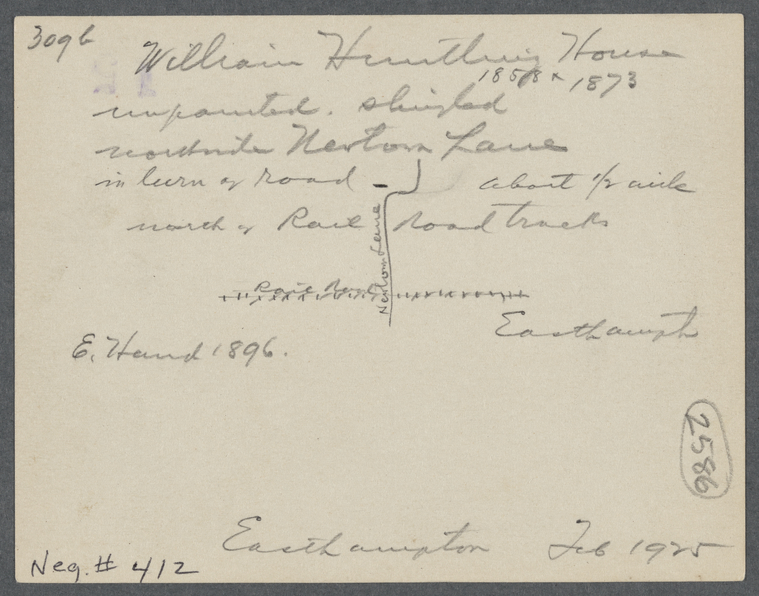 309b
William Huntting House
1858 & 1873
unpainted. shingled
northside Newtown Lane
in turn of road about 1/2 mile
north of Rail Road tracks
Newtown Lane
Rail Road
Easthampth
E. Hand 1896.
2586
Easthampton Feb 1925
Neg. # 412